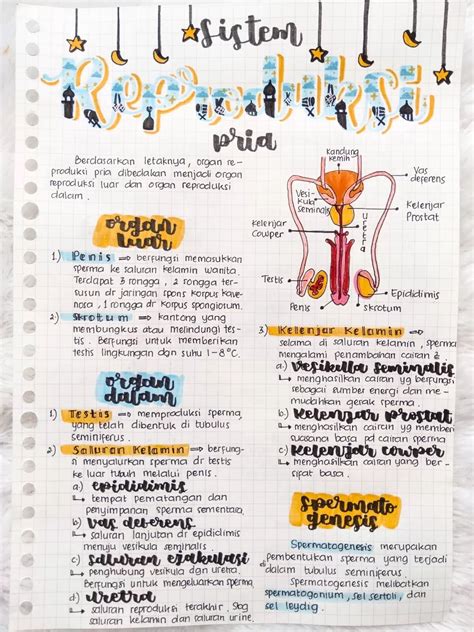 Sistem
Reproduksi
pria
Berdasarkan letaknya, organ re-
produksi pria dibedakan menjadi organ
reproduksi luar dan organ reproduksi
dalam.
organ
luar
1) Penis ⇒ berfungsi memasukkan
sperma ke saluran kelamin wanita.
Terdapat 3 rongga, 2 rongga ter-
susun dr jaringan spons korpus kave-
nosa, 1 rongga dr korpus spongium.
2) Skrotum ⇒ kantong yang
membungkus atau melindungi tes-
tis. Berfungsi untuk memberikan
testis lingkungan dgn suhu 1-8°C.
organ
dalam
1) Testis ⇒ memproduksi sperma
yang telah dibentuk di tubulus
seminiferus.
2) Saluran Kelamin ⇒ berfung-
si menyalurkan sperma dr testis
ke luar tubuh melalui penis.
a) epididimis
↳ tempat pematangan dan
penyimpanan sperma sementara.
b) vas deferens
↳ saluran lanjutan dr epididimis
menuju vesikula seminalis.
c) saluran ejakulasi
↳ penghubung vesikula dgn uretra.
Berfungsi untuk mengeluarkan sperma
d) uretra
↳ saluran reproduksi terakhir. Sbg
saluran kelamin dan saluran urine.
Kandung
kemih
Vas
deferens
Vesi-
kula
seminalis
Kelenjar
Prostat
Kelenjar
Cowper
uretra
Testis
Epididimis
Penis
Skrotum
3) Kelenjar Kelamin ⇒
selama di saluran kelamin, sperma
mengalami penambahan cairan 2.
a) Vesikula seminalis
↳ menghasilkan cairan yg berfungsi
sebagai sumber energi dan me-
mudahkan gerak sperma.
b) Kelenjar prostat
↳ menghasilkan cairan yg member
suasana basa pd cairan sperma
c) Kelenjar cowper
↳ menghasilkan cairan yang ber-
sifat basa.
spermato
genesis
Spermatogenesis merupakan
pembentukan sperma yang terjadi
dalam tubulus seminiferus.
Spermatogenesis melibatkan
spermatogonium, sel sertoli, dan
sel leydig.